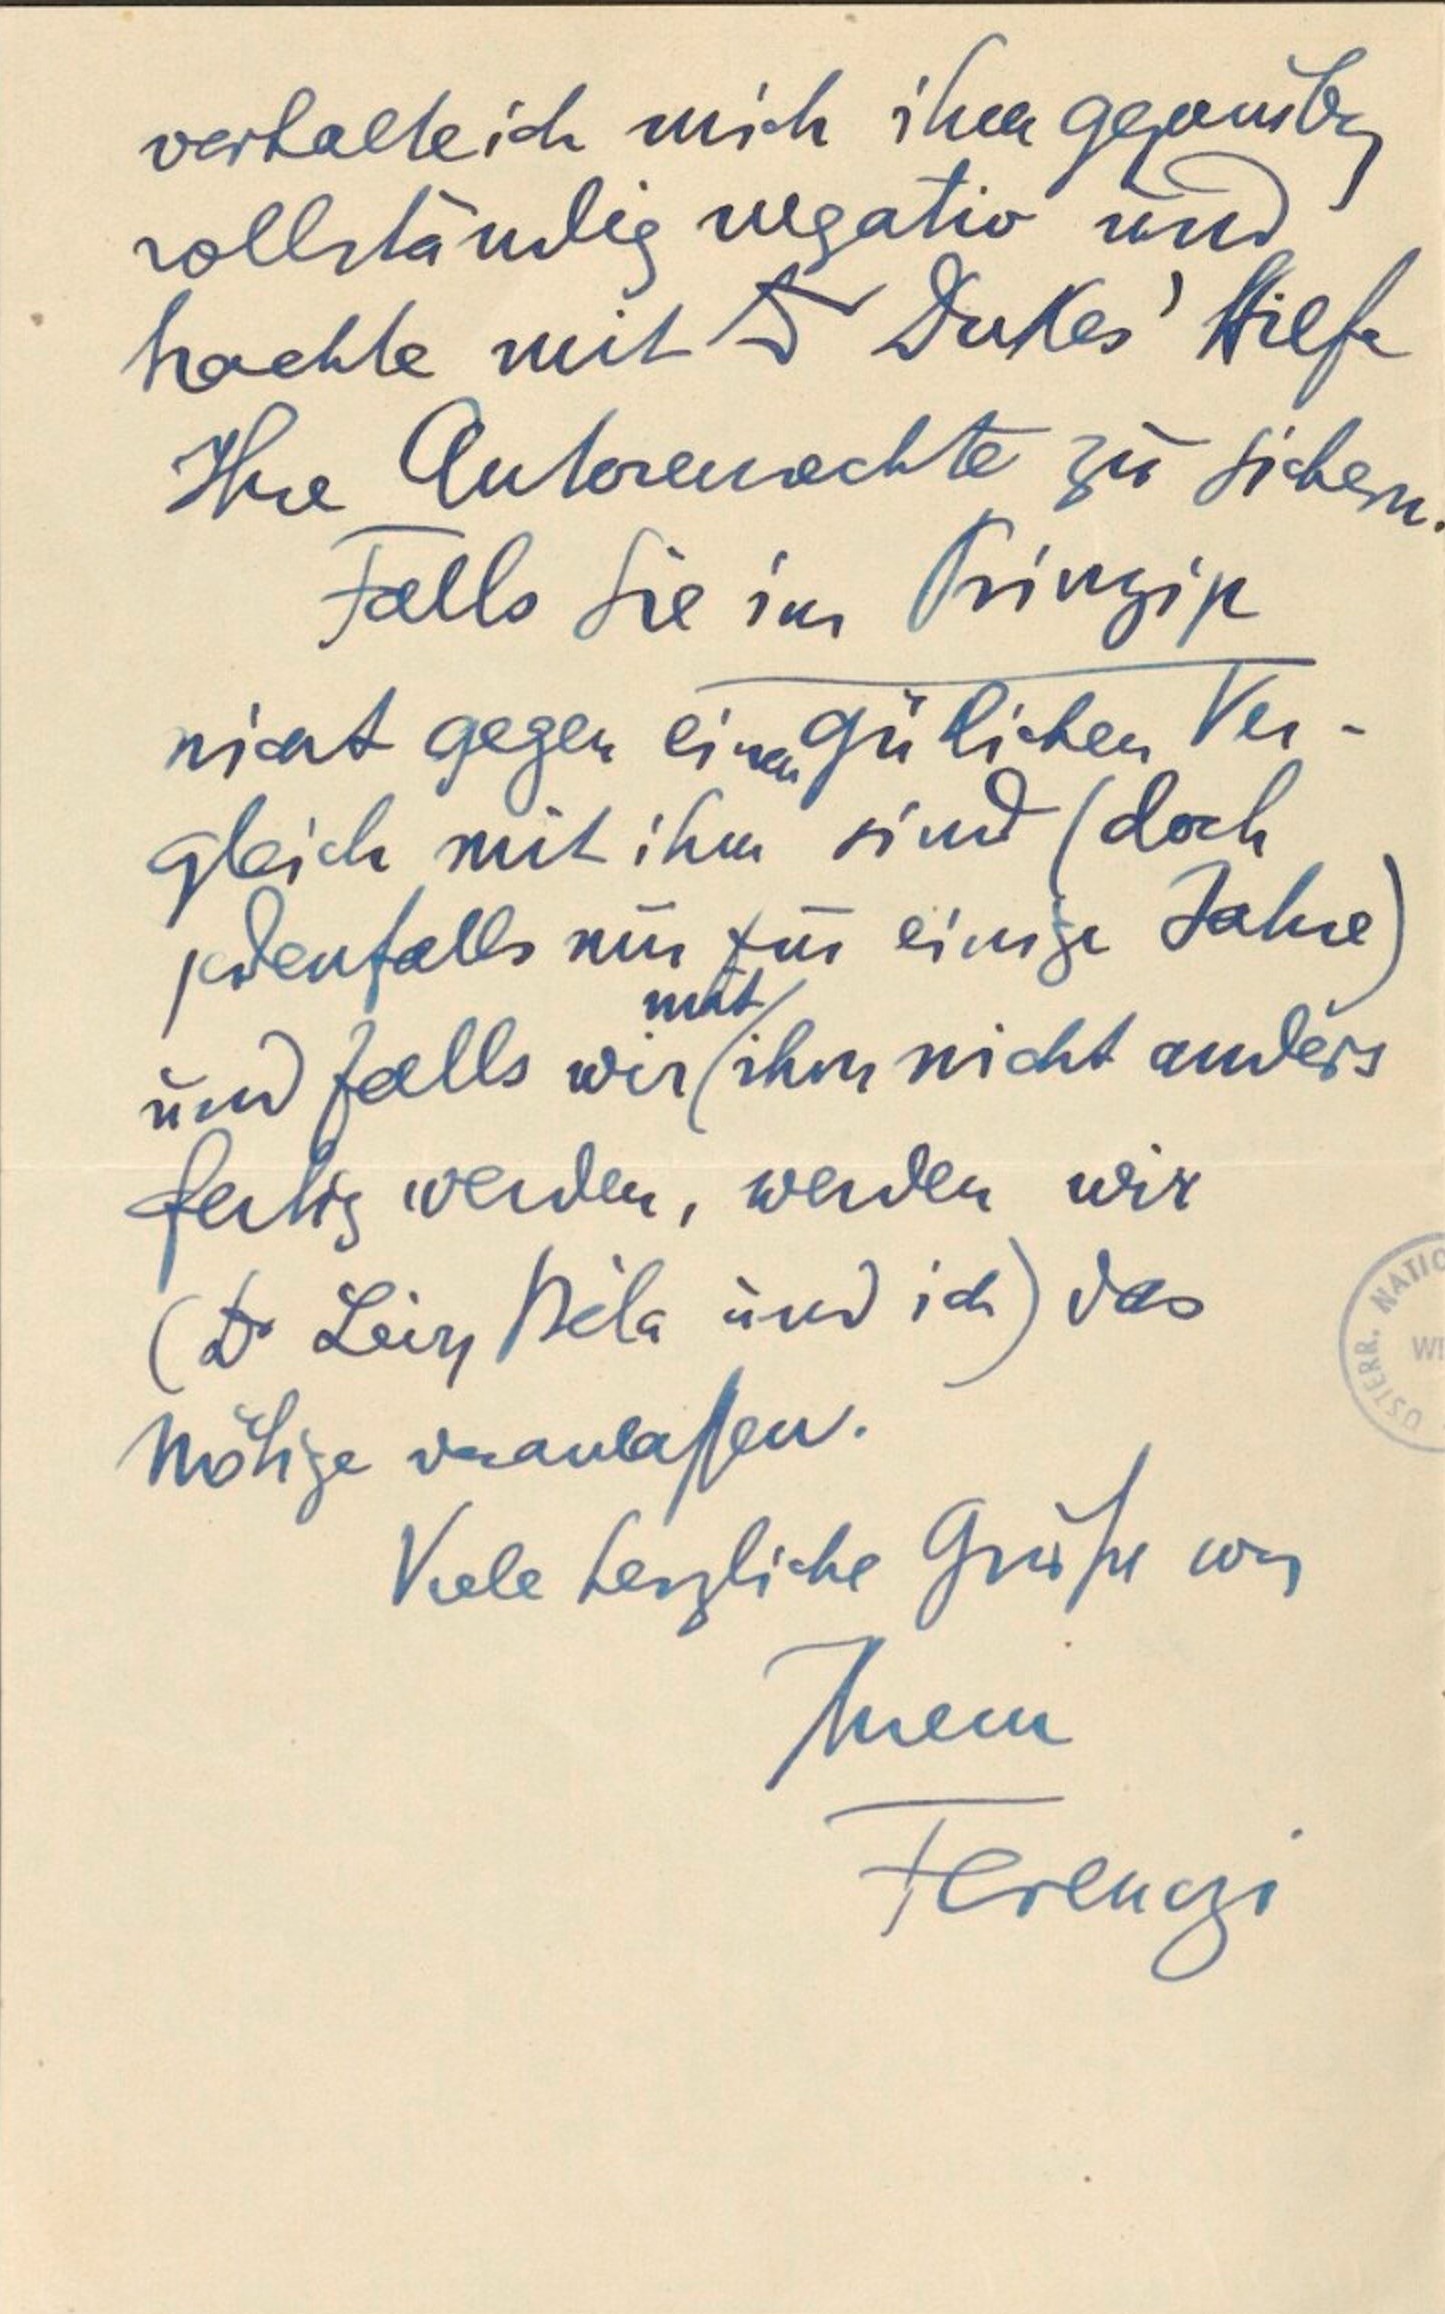 verhalte ich mich ihm gegenüber
vollständig negativ und
trachte mit Dr Dukes' Hilfe
Ihre Autorenrechte zu sichern.
Falls Sie im Prinzip
nicht gegen einen gütlichen Ver-
gleich mit ihm sind (doch
jedenfalls nur für einige Jahre)
mit
und falls wir ihm nicht anders
fertig werden, werden wir
(Dr Lévy Béla und ich) das
Nötige veranlaßen.
Viele herzliche Grüße von
Ihrem
Ferenczi
ÖSTERR. NATIO
WI